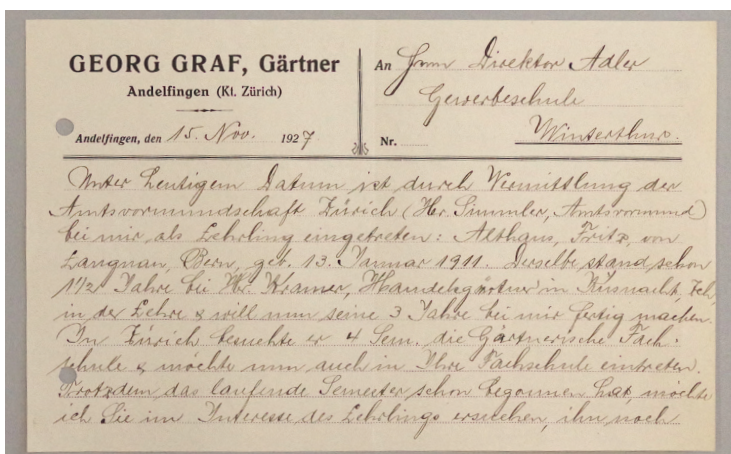 GEORG GRAF, Gärtner
Andelfingen (Kt. Zürich)
Andelfingen, den 15. Nov. 1927
An Herrn Direktor Adler
Gewerbeschule
Winterthur.
Nr.
Unter heutigem Datum ist durch Vermittlung der
Amtsvormundschaft Zürich (Hr. Simmler, Amtsvormund)
bei mir als Lehrling eingetreten: Althaus, Fritz, von
Langnau, Bern, geb. 13. Januar 1911. Derselbe stand schon
1 1/2 Jahre bei Hr. Kramer, Handelsgärtner in Küsnacht, Zch,
in der Lehre & will nun seine 3 Jahre bei mir fertig machen.
In Zürich besuchte er 4 Sem. die Gärtnerische Fach-
schule & möchte nun auch in Ihre Fachschule eintreten.
Trotzdem das laufende Semester schon begonnen hat, möchte
ich Sie im Interesse des Lehrlings ersuchen, ihn noch